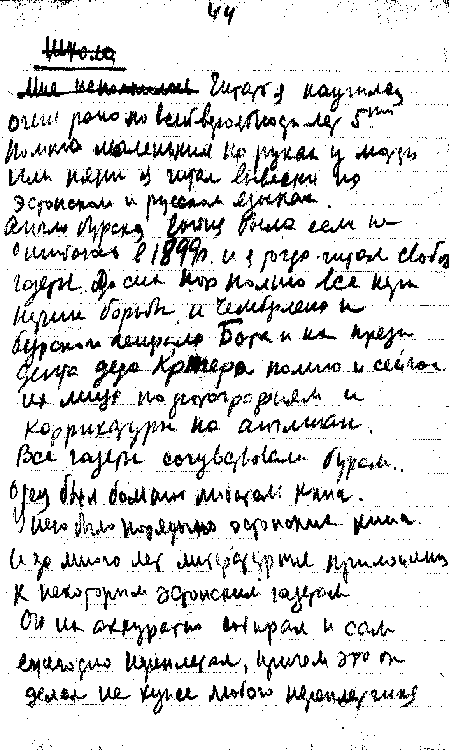 44
Школа
Читать я научился
очень рано по всей вероятности лет 5ти
Помню маленьким на руках у матери
или няни я читал вывески на
эстонском и русском языках.
Англо бурская война была если не
ошибаюсь в 1899г. и я тогда читал свобод
газеты. До сих пор помню все
борьбы и Чемберлена и
бурского генерала Бота и на прези
дента деда Крюгера помню и сейчас
их лица по фотографиям и
карикатуры на англичан.
Все газеты сочувствовали бурам.
Отец был большим любителем книг.
У него было порядочно эстонских книг
и за много лет литературные приложения
к некоторым эстонским газетам
Он их аккуратно собирал и сам
ежегодно переплетал, причем это он
делал не хуже любого переплетчика